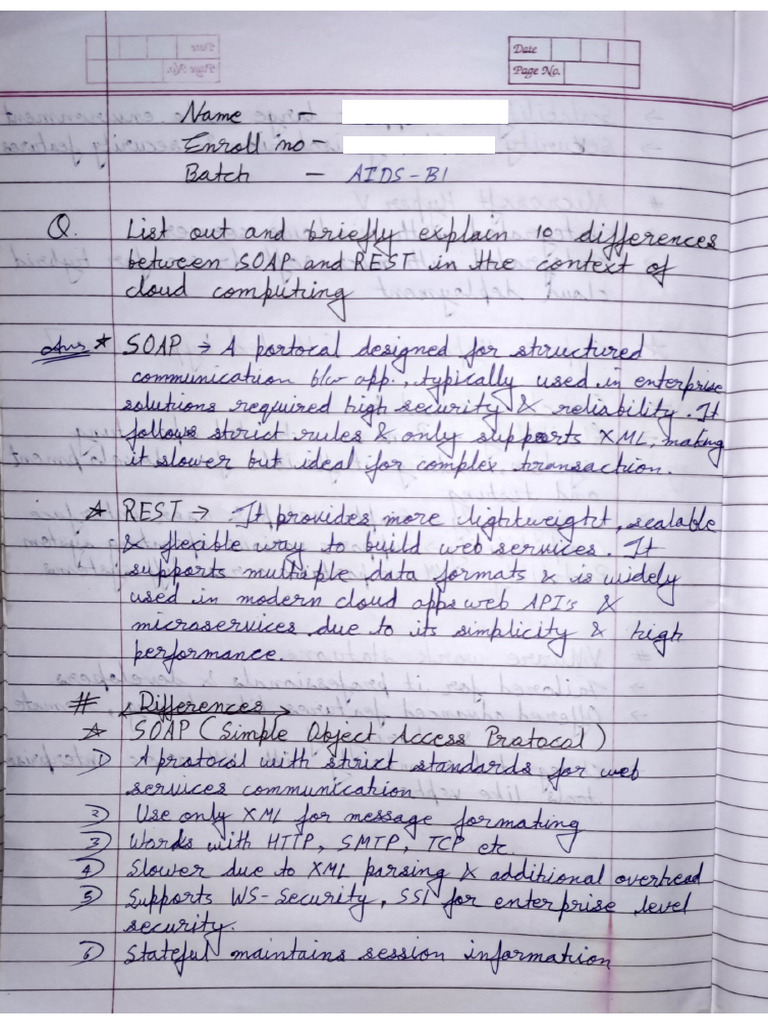 Date
Page No.
Name -
Enroll no -
Batch - AIDS-B1
Q. List out and briefly explain 10 differences
between SOAP and REST in the context of
cloud computing
Ans * SOAP → A portocal designed for structured
communication b/w app., typically used in enterprise
solutions required high security & reliability. It
follows strict rules & only supports XML, making
it slower but ideal for complex transaction.
* REST → It provides more lightweight, scalable
& flexible way to build web services. It
supports multiple data formats & is widely
used in modern cloud apps web API's &
microservices due to its simplicity & high
performance.
# Differences
* SOAP (Simple Object Access Protocol)
1) A protocol with strict standards for web
services communication
2) Use only XML for message formating
3) Works with HTTP, SMTP, TCP etc.
4) Slower due to XML parsing & additional overhead
5) Supports WS-Security, SSl for enterprise level
security.
6) Stateful maintains session information